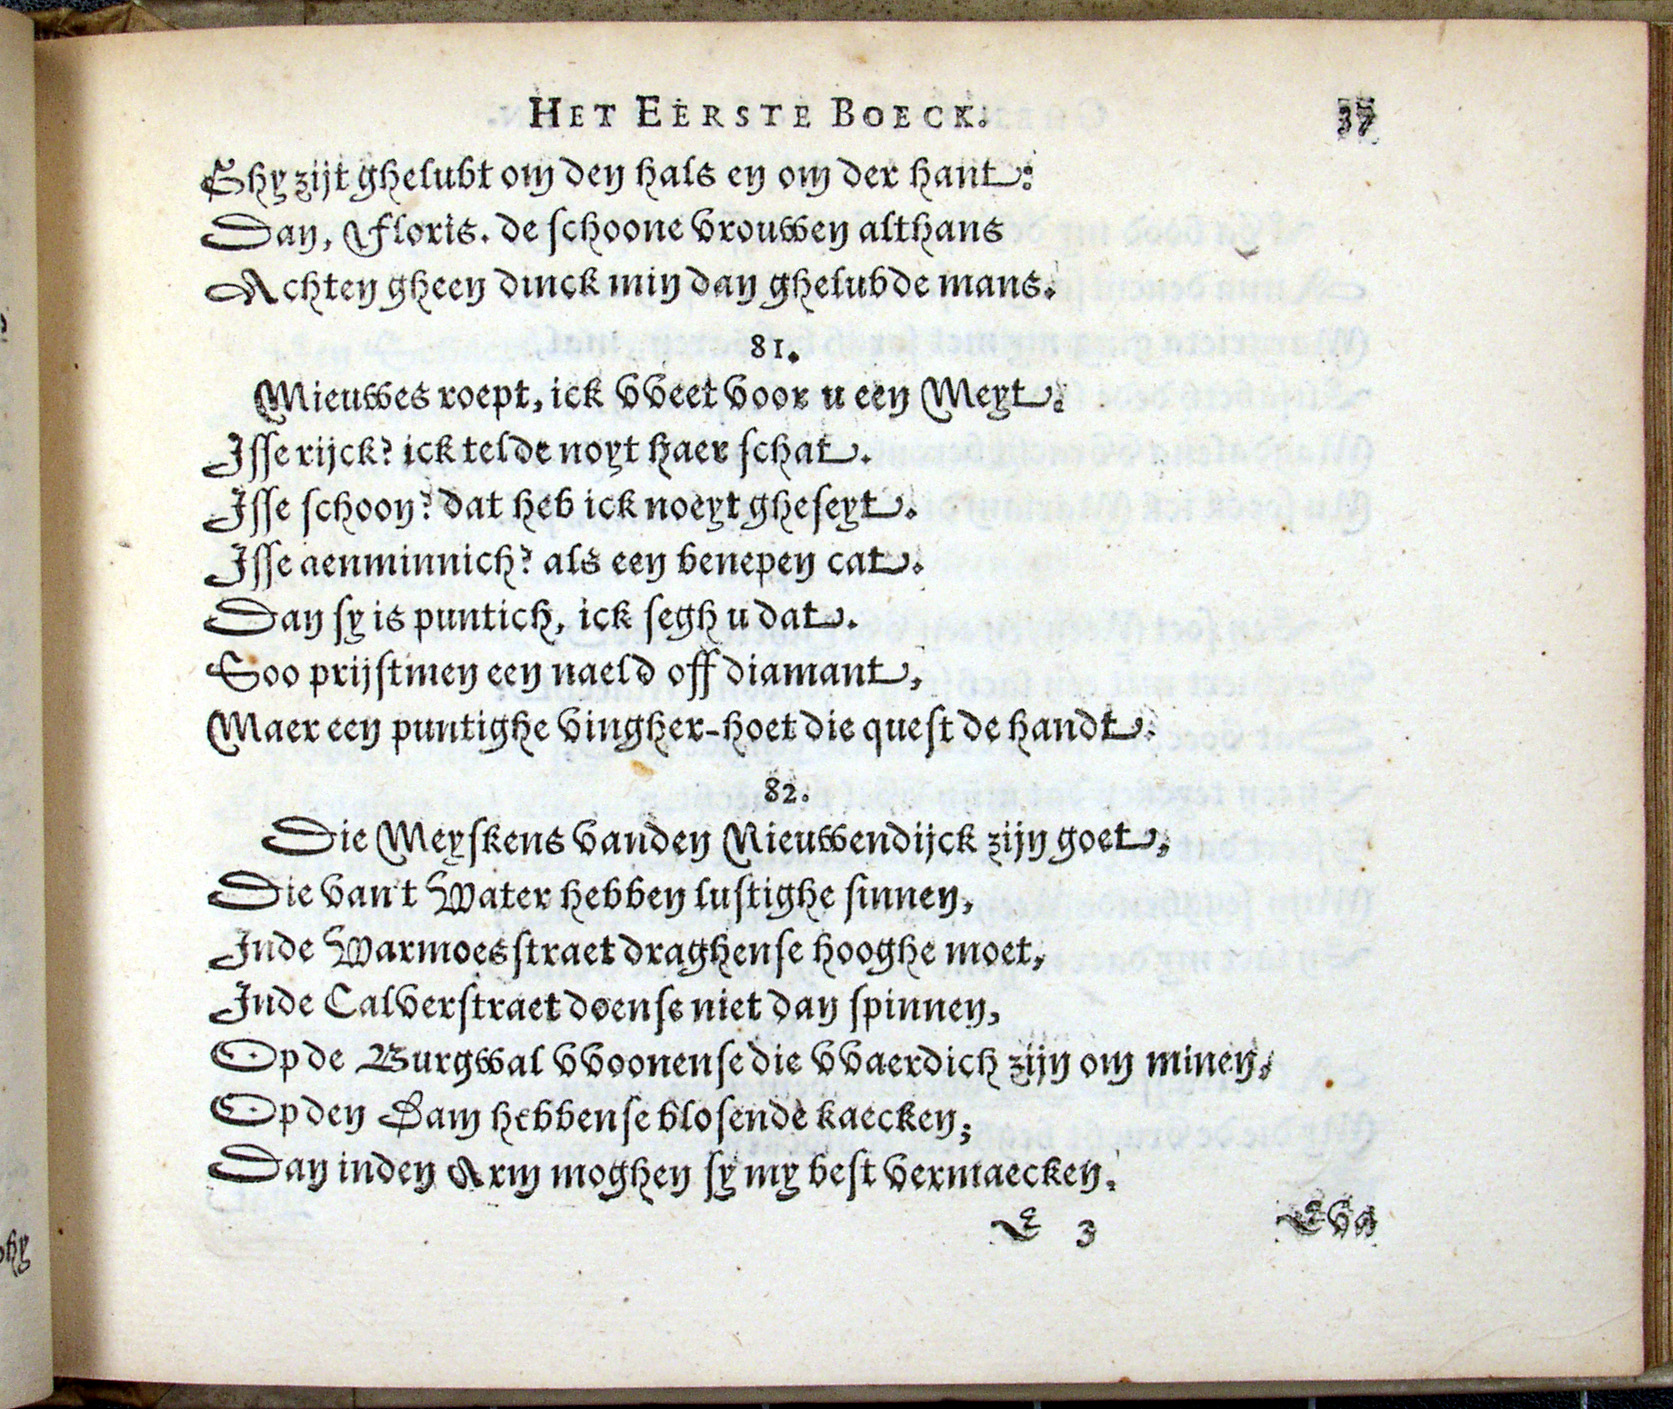 HET EERSTE BOECK. 37
Ghy zijt ghelubt om den hals en om der hant:
Dan, Floris. de schoone vrouwen althans
Achten gheen dinck min dan ghelubde mans.
81.
Mieuwes roept, ick vveet voor u een Meyt:
Isse rijck? ick telde noyt haer schat.
Isse schoon? dat heb ick noeyt gheseyt.
Isse aenminnich? als een benepen cat.
Dan sy is puntich, ick segh u dat.
Soo prijstmen een naeld off diamant,
Maer een puntighe vingher-hoet die quest de handt.
82.
Die Meyskens vanden Nieuwendijck zijn goet,
Die van t Water hebben lustighe sinnen,
Inde Warmoesstraet draghense hooghe moet,
Inde Calverstraet doense niet dan spinnen,
Op de Burgwal vvoonense die vvaerdich zijn om minen,
Op den Dam hebbense blosende kaecken;
Dan inden Arm moghen sy my best vermaecken.
E 3 Eva
hy